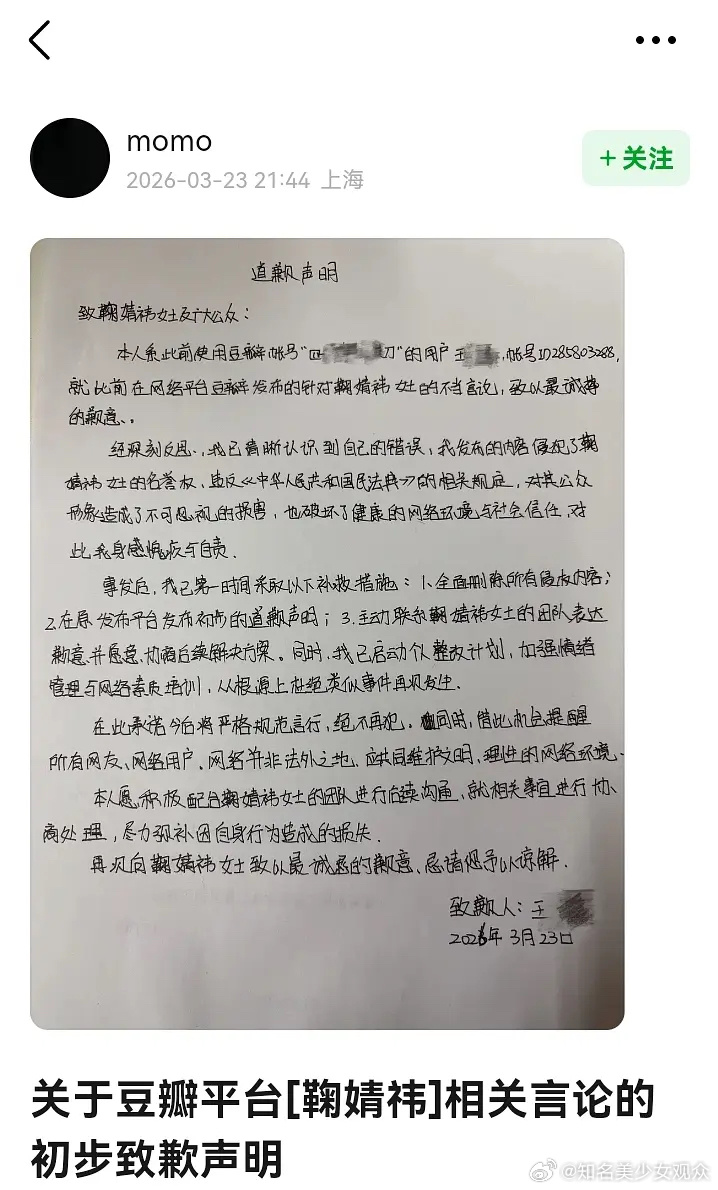 momo
2026-03-23 21:44 上海
+关注
道歉声明
致鞠婧祎女士及广大公众：
本人系此前使用豆瓣帐号“四 刀”的用户王 ，帐号ID285803288，
就此前在网络平台豆瓣发布的针对鞠婧祎女士的不当言论，致以最诚挚
的歉意。
经深刻反思，我已清晰认识到自己的错误，我发布的内容侵犯了鞠
婧祎女士的名誉权，违反《中华人民共和国民法典》的相关规定，对其公众
形象造成了不可忽视的损害，也破坏了健康的网络环境与社会信任，对
此我身感愧疚与自责。
事发后，我已第一时间采取以下补救措施：1.全面删除所有侵权内容；
2.在原发布平台发布初步的道歉声明；3.主动联系鞠婧祎女士的团队表达
歉意并愿意协商后续解决方案。同时，我已启动个人整改计划，加强情绪
管理与网络素质培训，从根源上杜绝类似事件再次发生。
在此承诺今后将严格规范言行，绝不再犯。同时，借此机会提醒
所有网友、网络用户，网络并非法外之地，应共同维护文明、理性的网络环境。
本人愿积极配合鞠婧祎女士的团队进行后续沟通，就相关事宜进行协
商处理，尽力弥补因自身行为造成的损失。
再次向鞠婧祎女士致以最诚恳的歉意，恳请您予以谅解。
致歉人：王
2026年3月23日
关于豆瓣平台[鞠婧祎]相关言论的
初步致歉声明
@知名美少女观众